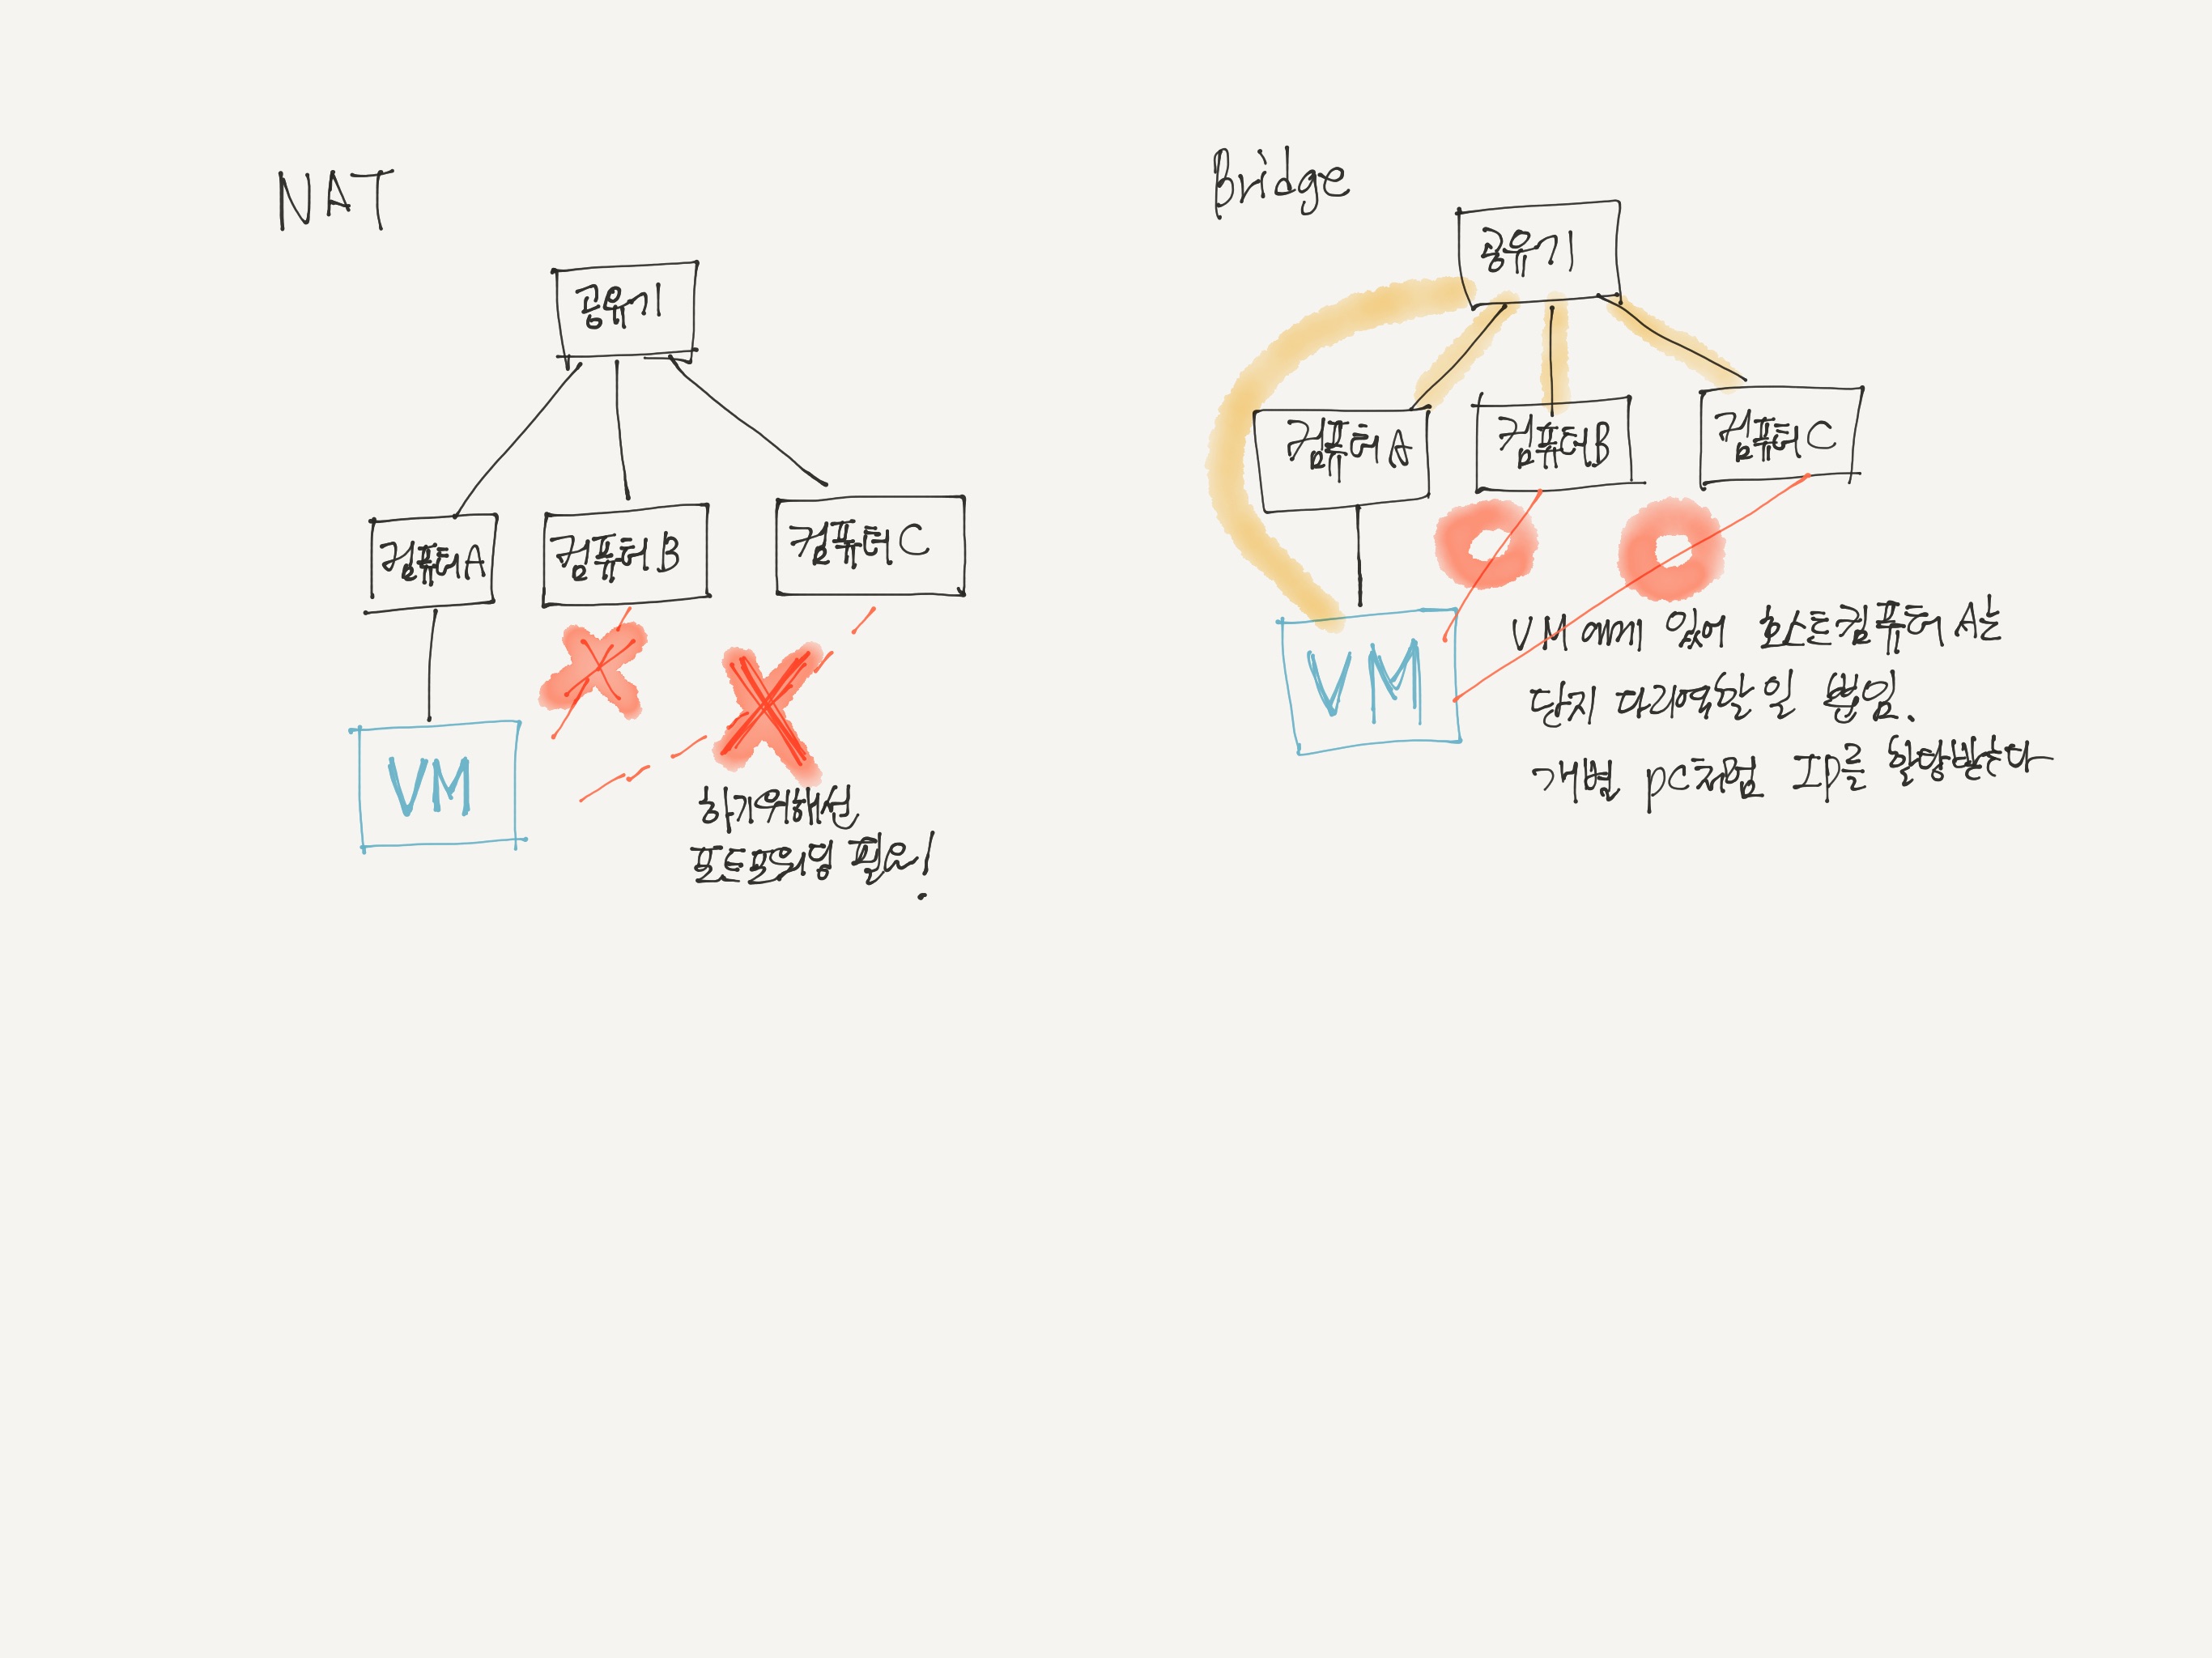 NAT
공유기
컴퓨터A
컴퓨터 B
컴퓨터 C
VM
하기위해선
포트포워딩 필요!
Bridge
공유기
컴퓨터 A
컴퓨터B
컴퓨터 C
VM
VM에게 있어 호스트컴퓨터 A는
단지 다리역할 일 뿐임.
개별 pc처럼 IP를 할당받는다